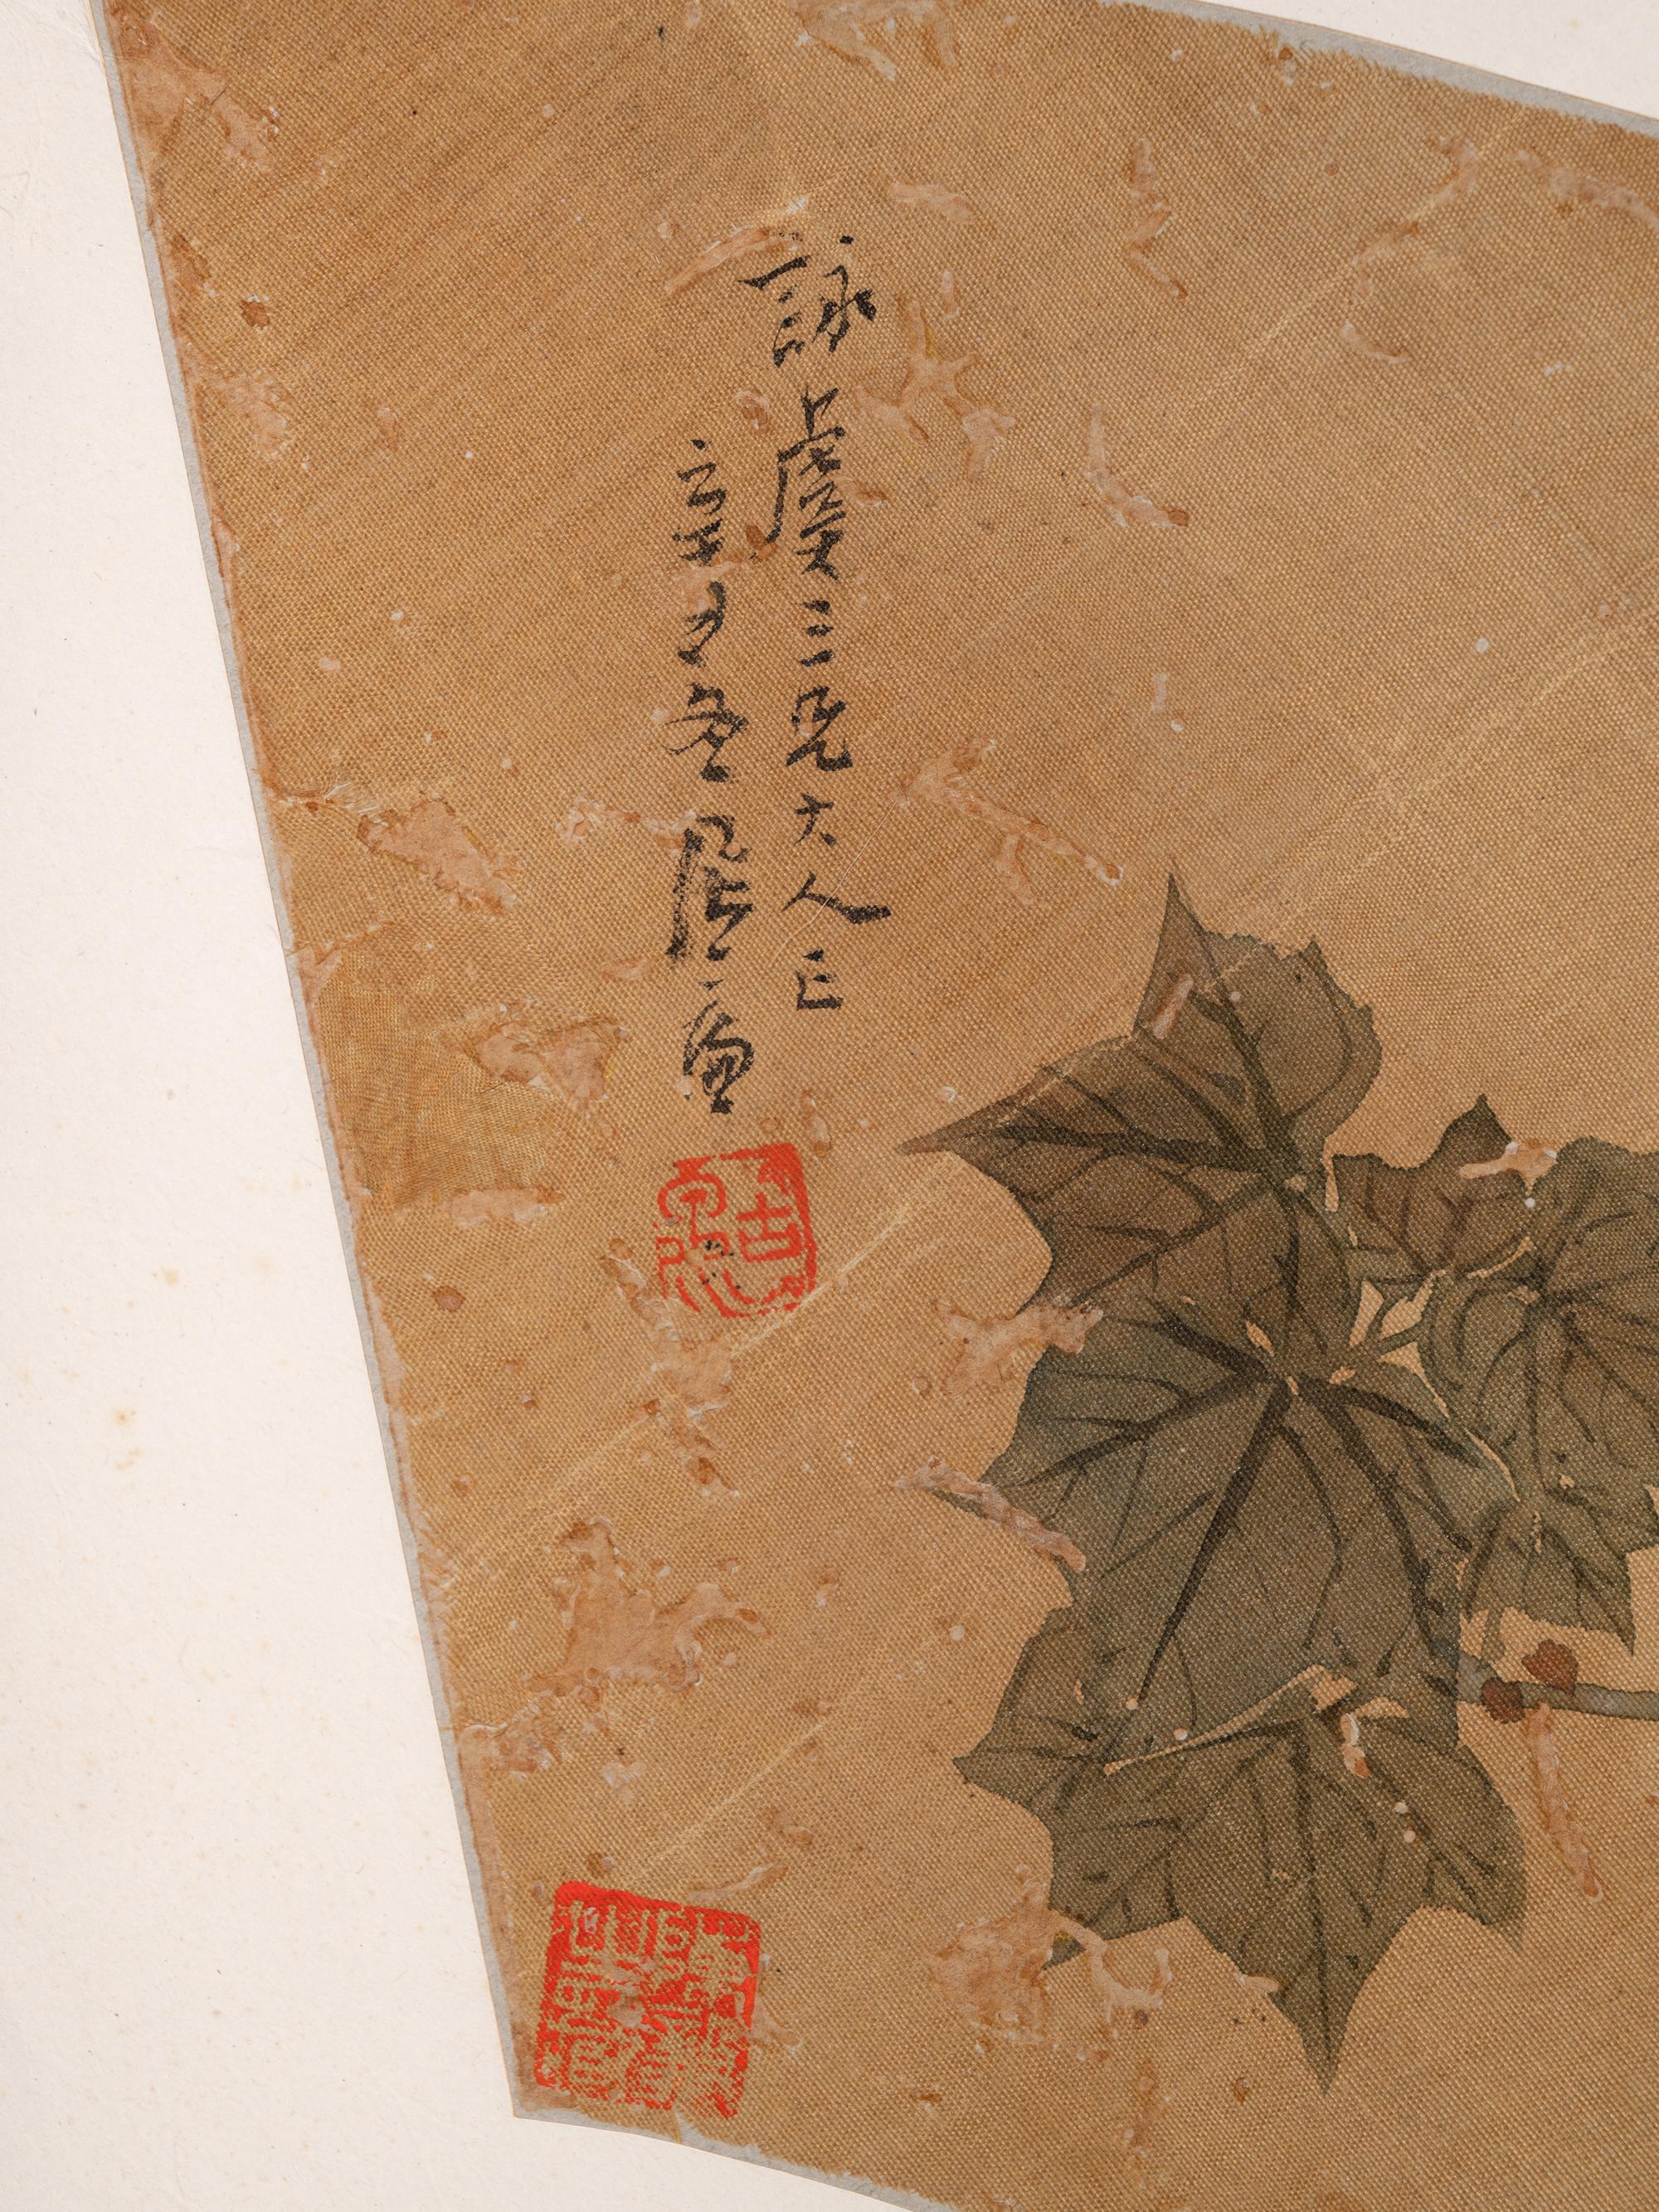 詠虞三兄大人正
辛丑冬居廉
古泉